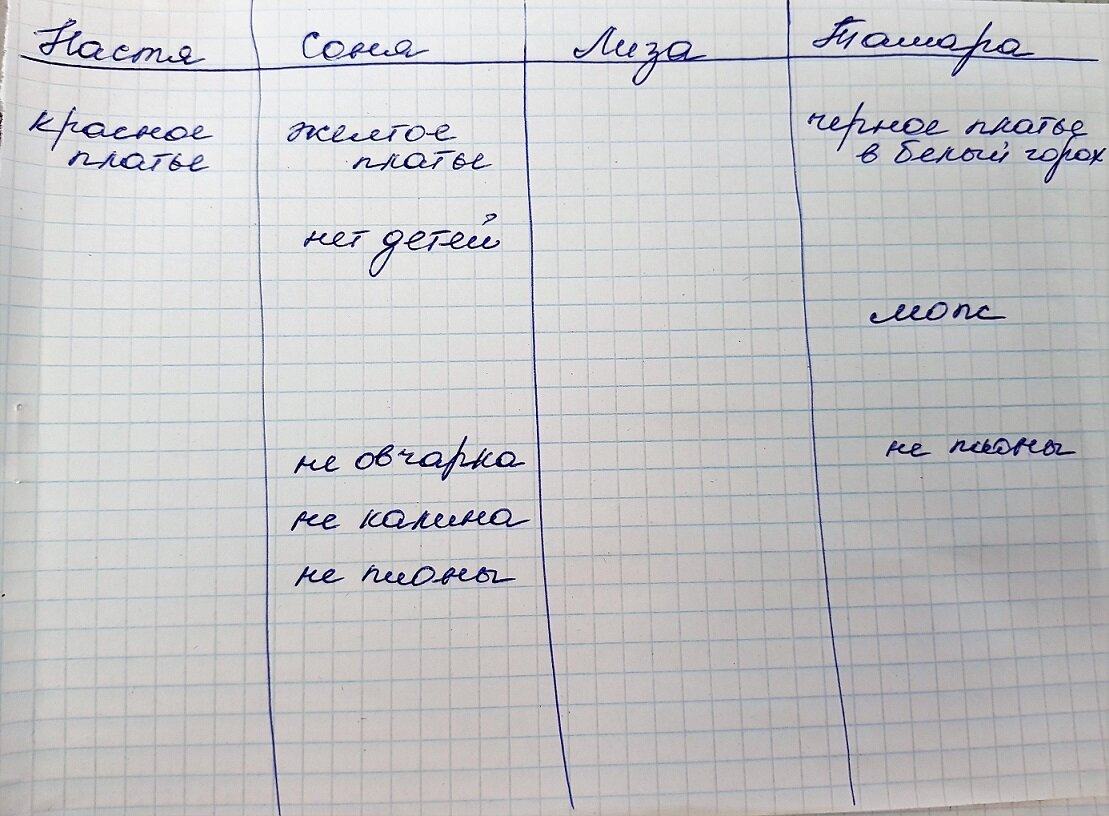 Настя Соня Лиза Тамара
красное платье
желтое платье
черное платье
в белый горох
нет детей
мопс
не овчарка
не пионы
не калина
не пионы